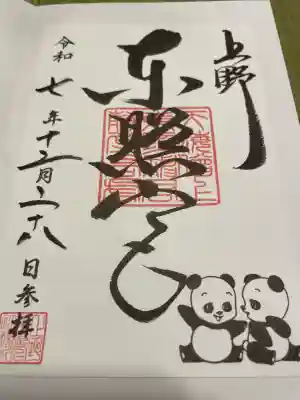 上野
東照宮
令和七年十二月二十八日参拝